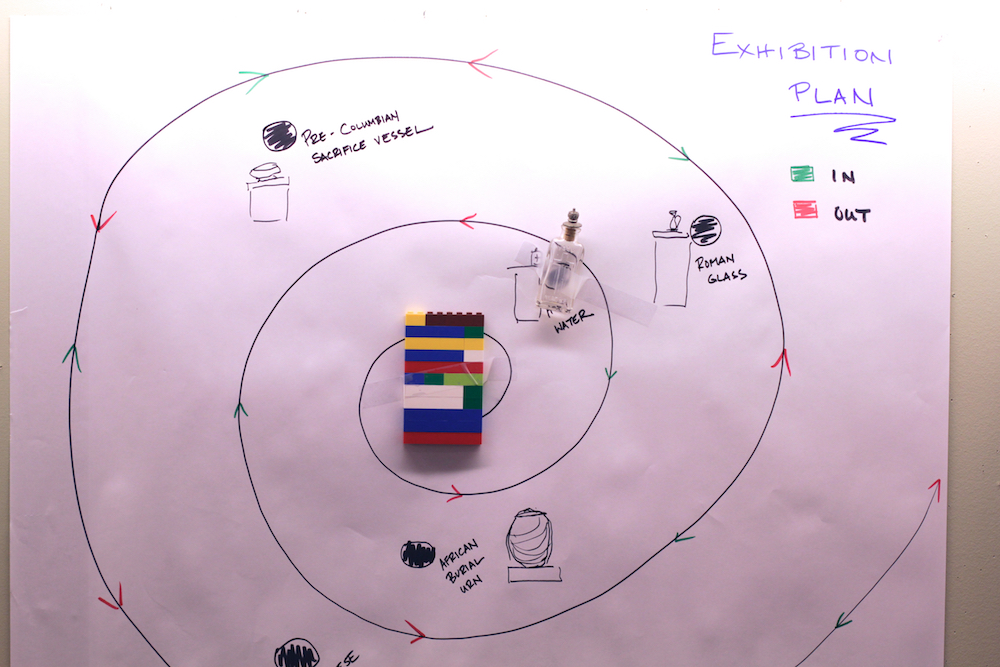 EXHIBITION
PLAN
IN
OUT
PRE-COLUMBIAN
SACRIFICE VESSEL
ROMAN
GLASS
WATER
AFRICAN
BURIAL
URN